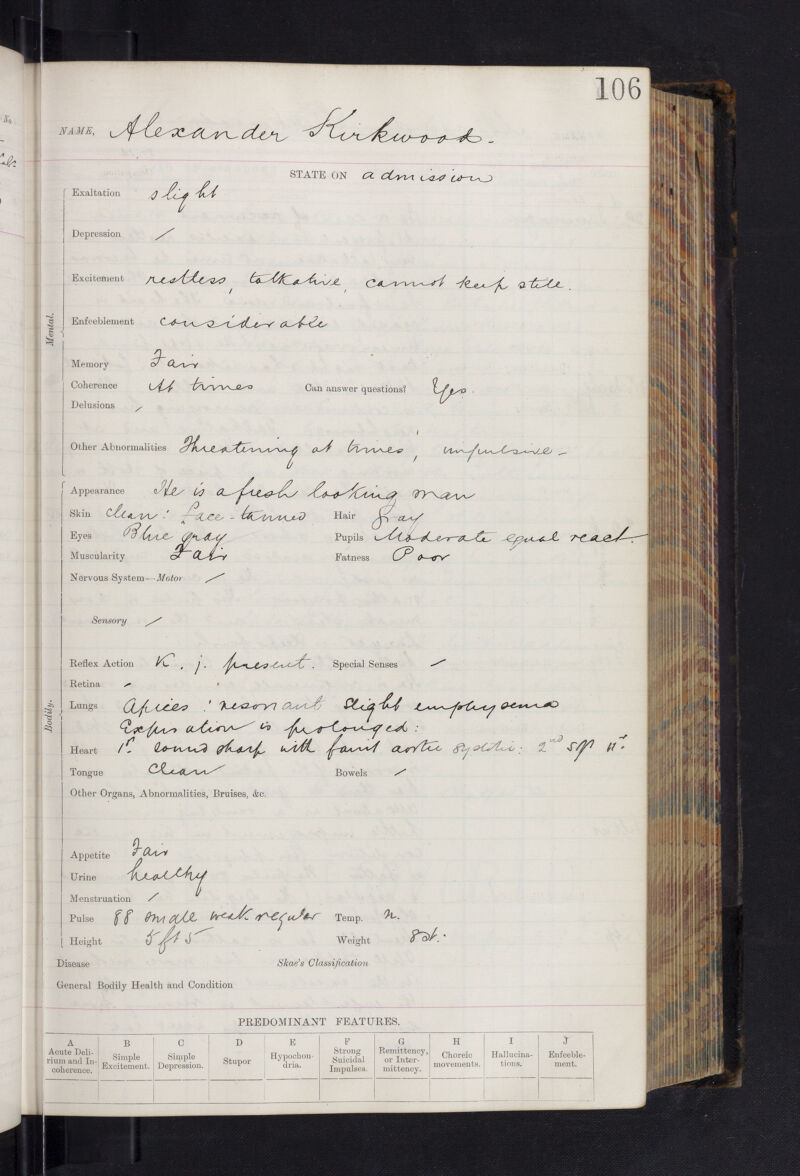 106
NAME, Alexander Kirkwood.
STATE ON admission
Mental.
Exaltation slight
Depression /
Excitement restless, talkative, cannot keep still.
Enfeeblement considerable
Memory Fair
Coherence At times Can answer questions? Yes.
Delusions /
Other Abnormalities Threatening at times, impulsive -
Bodily.
Appearance He is a fresh looking man
Skin clean: face - tanned Hair gray
Eyes Blue gray Pupils Moderate equal react.
Muscularity Fair Fatness Poor
Nervous System—Motor /
Sensory /
Reflex Action K. j. present. Special Senses /
Retina /
Lungs Apices: resonant slight emphysema
Expiration is prolonged:
Heart 1st. sound sharp with faint aortic systolic: 2nd
Tongue Clean Bowels /
Other Organs, Abnormalities, Bruises, &c.
Appetite Fair
Urine healthy
Menstruation /
Pulse 88 small weak regular Temp. N.
Height 5 ft 5 Weight 8 st.
Disease Skae's Classification
General Bodily Health and Condition
PREDOMINANT FEATURES.
A B C D E F G H I J
Acute Delirium and Incoherence. Simple Excitement. Simple Depression. Stupor Hypochondria. Strong Suicidal Impulses. Remittency, or Intermittency. Choreic movements. Hallucinations. Enfeeblement.